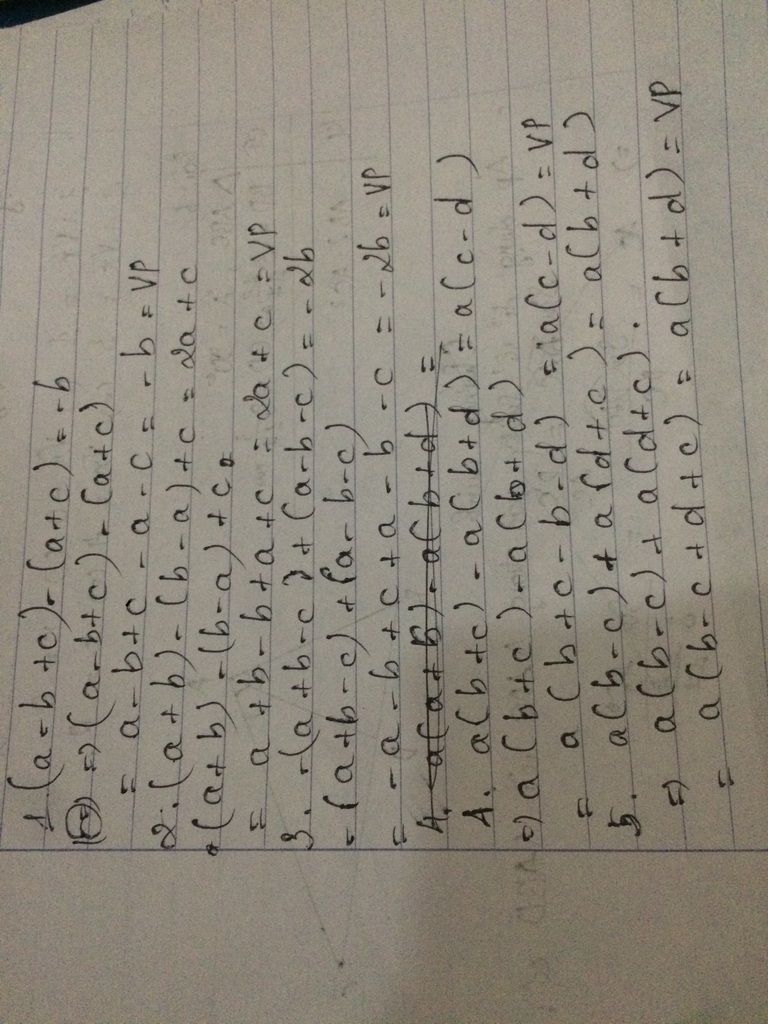 1. (a-b+c)-(a+c)=-b
=> (a-b+c)-(a+c)
= a-b+c-a-c=-b=VP
2. (a+b)-(b-a)+c=2a+c
(a+b)-(b-a)+c
= a+b-b+a+c=2a+c=VP
3. -(a+b-c)+(a-b-c)=-2b
-(a+b-c)+(a-b-c)
= -a-b+c+a-b-c=-2b=VP
4. -a(a+b)-a(b+d)=
4. a(b+c)-a(b+d)=a(c-d)
=> a(b+c)-a(b+d)
= a(b+c-b-d)=a(c-d)=VP
5. a(b-c)+a(d+c)=a(b+d)
=> a(b-c)+a(d+c).
= a(b-c+d+c)=a(b+d)=VP